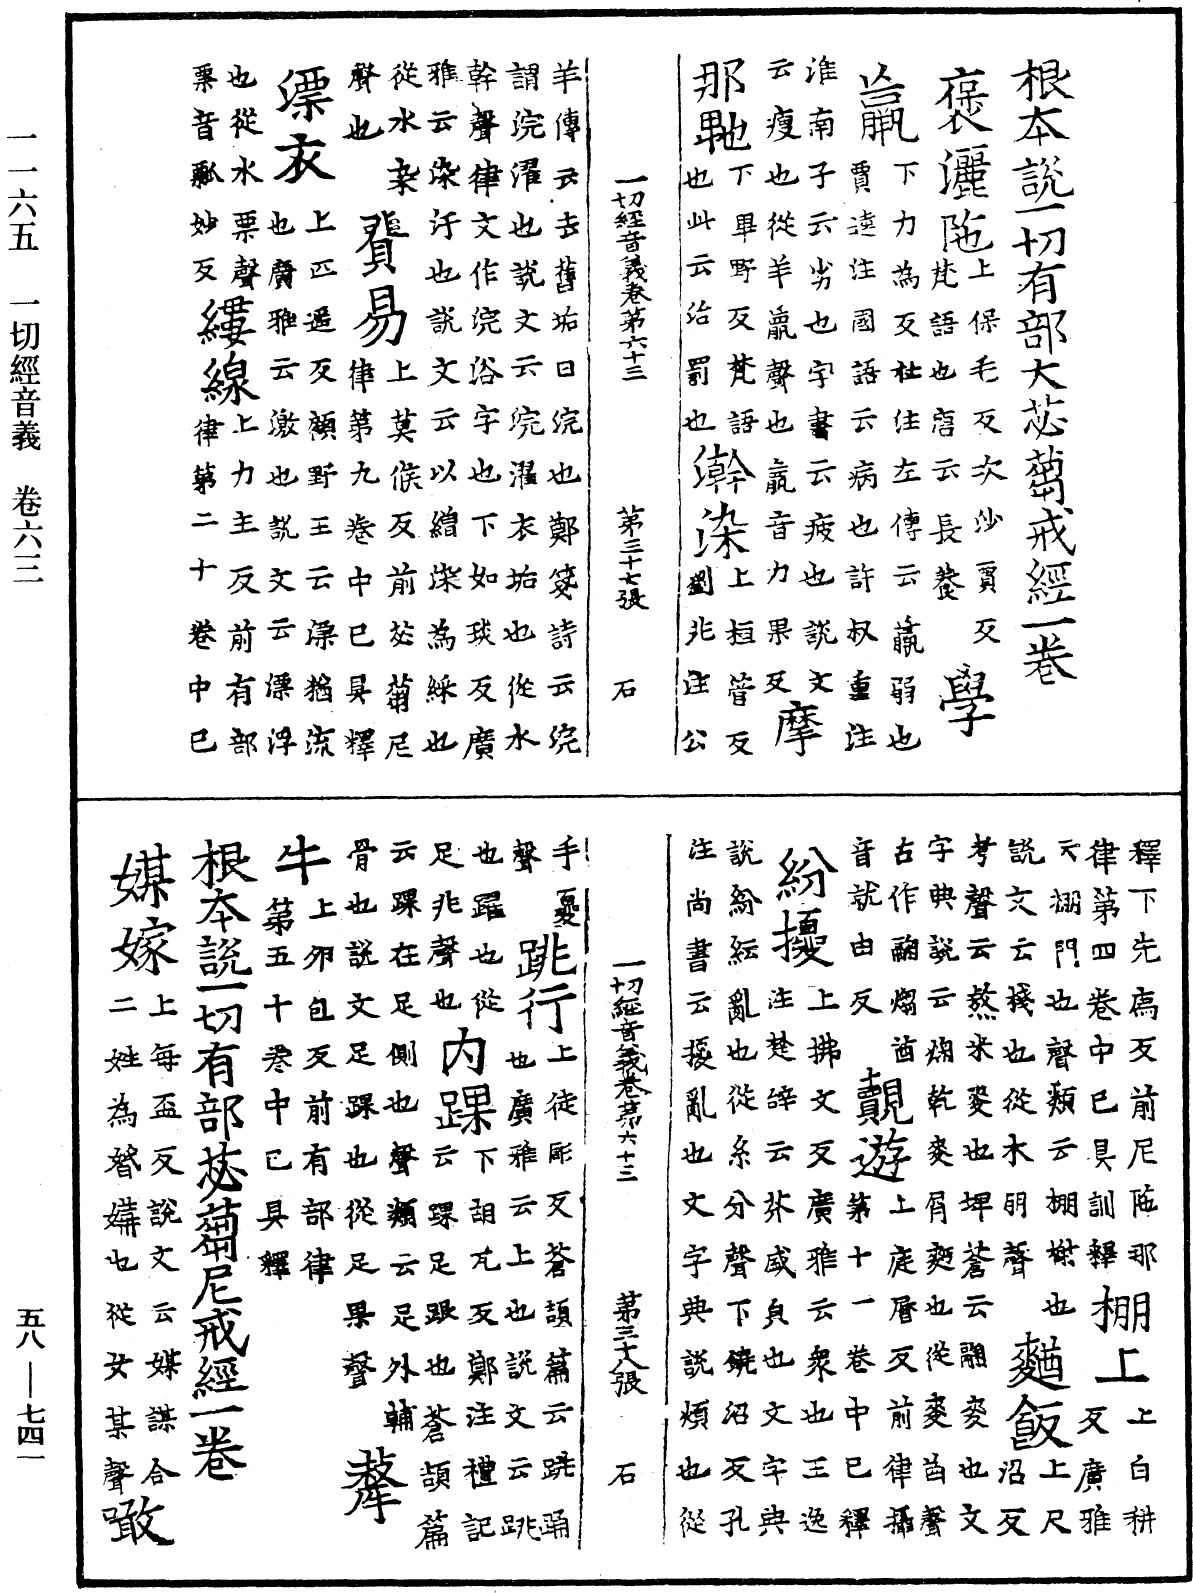 根本說一切有部大苾蒭戒經一卷
褒灑陁上保毛反次沙賈反梵語也唐云長養
學羸下力為反杜注左傳云羸弱也賈逵注國語云病也許叔重注
淮南子云劣也字書云疲也說文
云瘦也從羊𣎆聲也𣎆音力果反摩
那𠼝下畢野反梵語也此云治罰也
澣染上桓管反劉兆注公
一切經音義卷第六十三 第三十七張 石
羊傳云去舊垢曰浣也鄭箋詩云浣
謂浣濯也說文云浣濯衣垢也從水
幹聲律文作浣俗字也下如琰反廣
雅云染汙也說文云以繒染為綵也
從水杂聲也
貿易上莫候反前苾蒭尼律第九卷中已具釋
漂衣上匹遥反顧野王云漂猶流
也廣雅云激也說文云漂浮
也從水票聲票音瓢妙反
縷線上力主反前有部律第二十卷中已
釋下先薦反前尼陁那
律第四卷中已具訓釋
棚上上白耕反廣雅
云棚閣也聲類云棚棧也
說文云棧也從木朋聲
麨飯上尺沼反
考聲云熬米麥也埤蒼云䴬麥也文
字典說云煼乾麥屑麨也從麥酋聲
古作䎻煼酋音就由反
覩遊上庭曆反前律攝第十一卷中已釋
紛擾上拂文反廣雅云衆也王逸
注楚辝云芬盛貟也文字典
說紛紜亂也從糸分聲下鐃紹反孔
注尚書云擾亂也文字典說煩也從
一切經音義卷第六十三 第三十八張 石
手憂聲
跳行上徒彫反蒼頡篇云跳踊
也廣雅云上也說文云跳
也躍也從足兆聲也
內踝下胡瓦反鄭注禮記
云踝足跟也蒼頡篇
云踝在足側也聲類云足外輔
骨也說文足踝也從足果聲
犛牛上夘包反前有部律第五十卷中已具釋
根本說一切有部苾蒭尼戒經一卷
媒嫁上每盃反說文云媒謀合
二姓為㛰媾也從女某聲
噉
一一六五 一切經音義 卷六三
五八—七四一